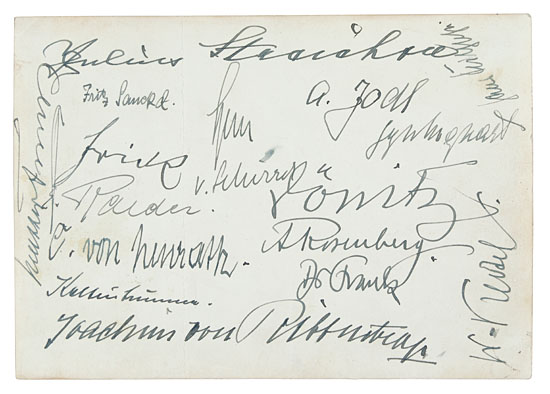 Julius Streicher
Fritz Sauckel.
A. Jodl
Seyss-Inquart
Frick
v. Schirach
Raeder.
Dönitz
C. von Neurath.
A Rosenberg
Dr Frank
Kaltenbrunner.
W. Keitel
Joachim von Ribbentrop